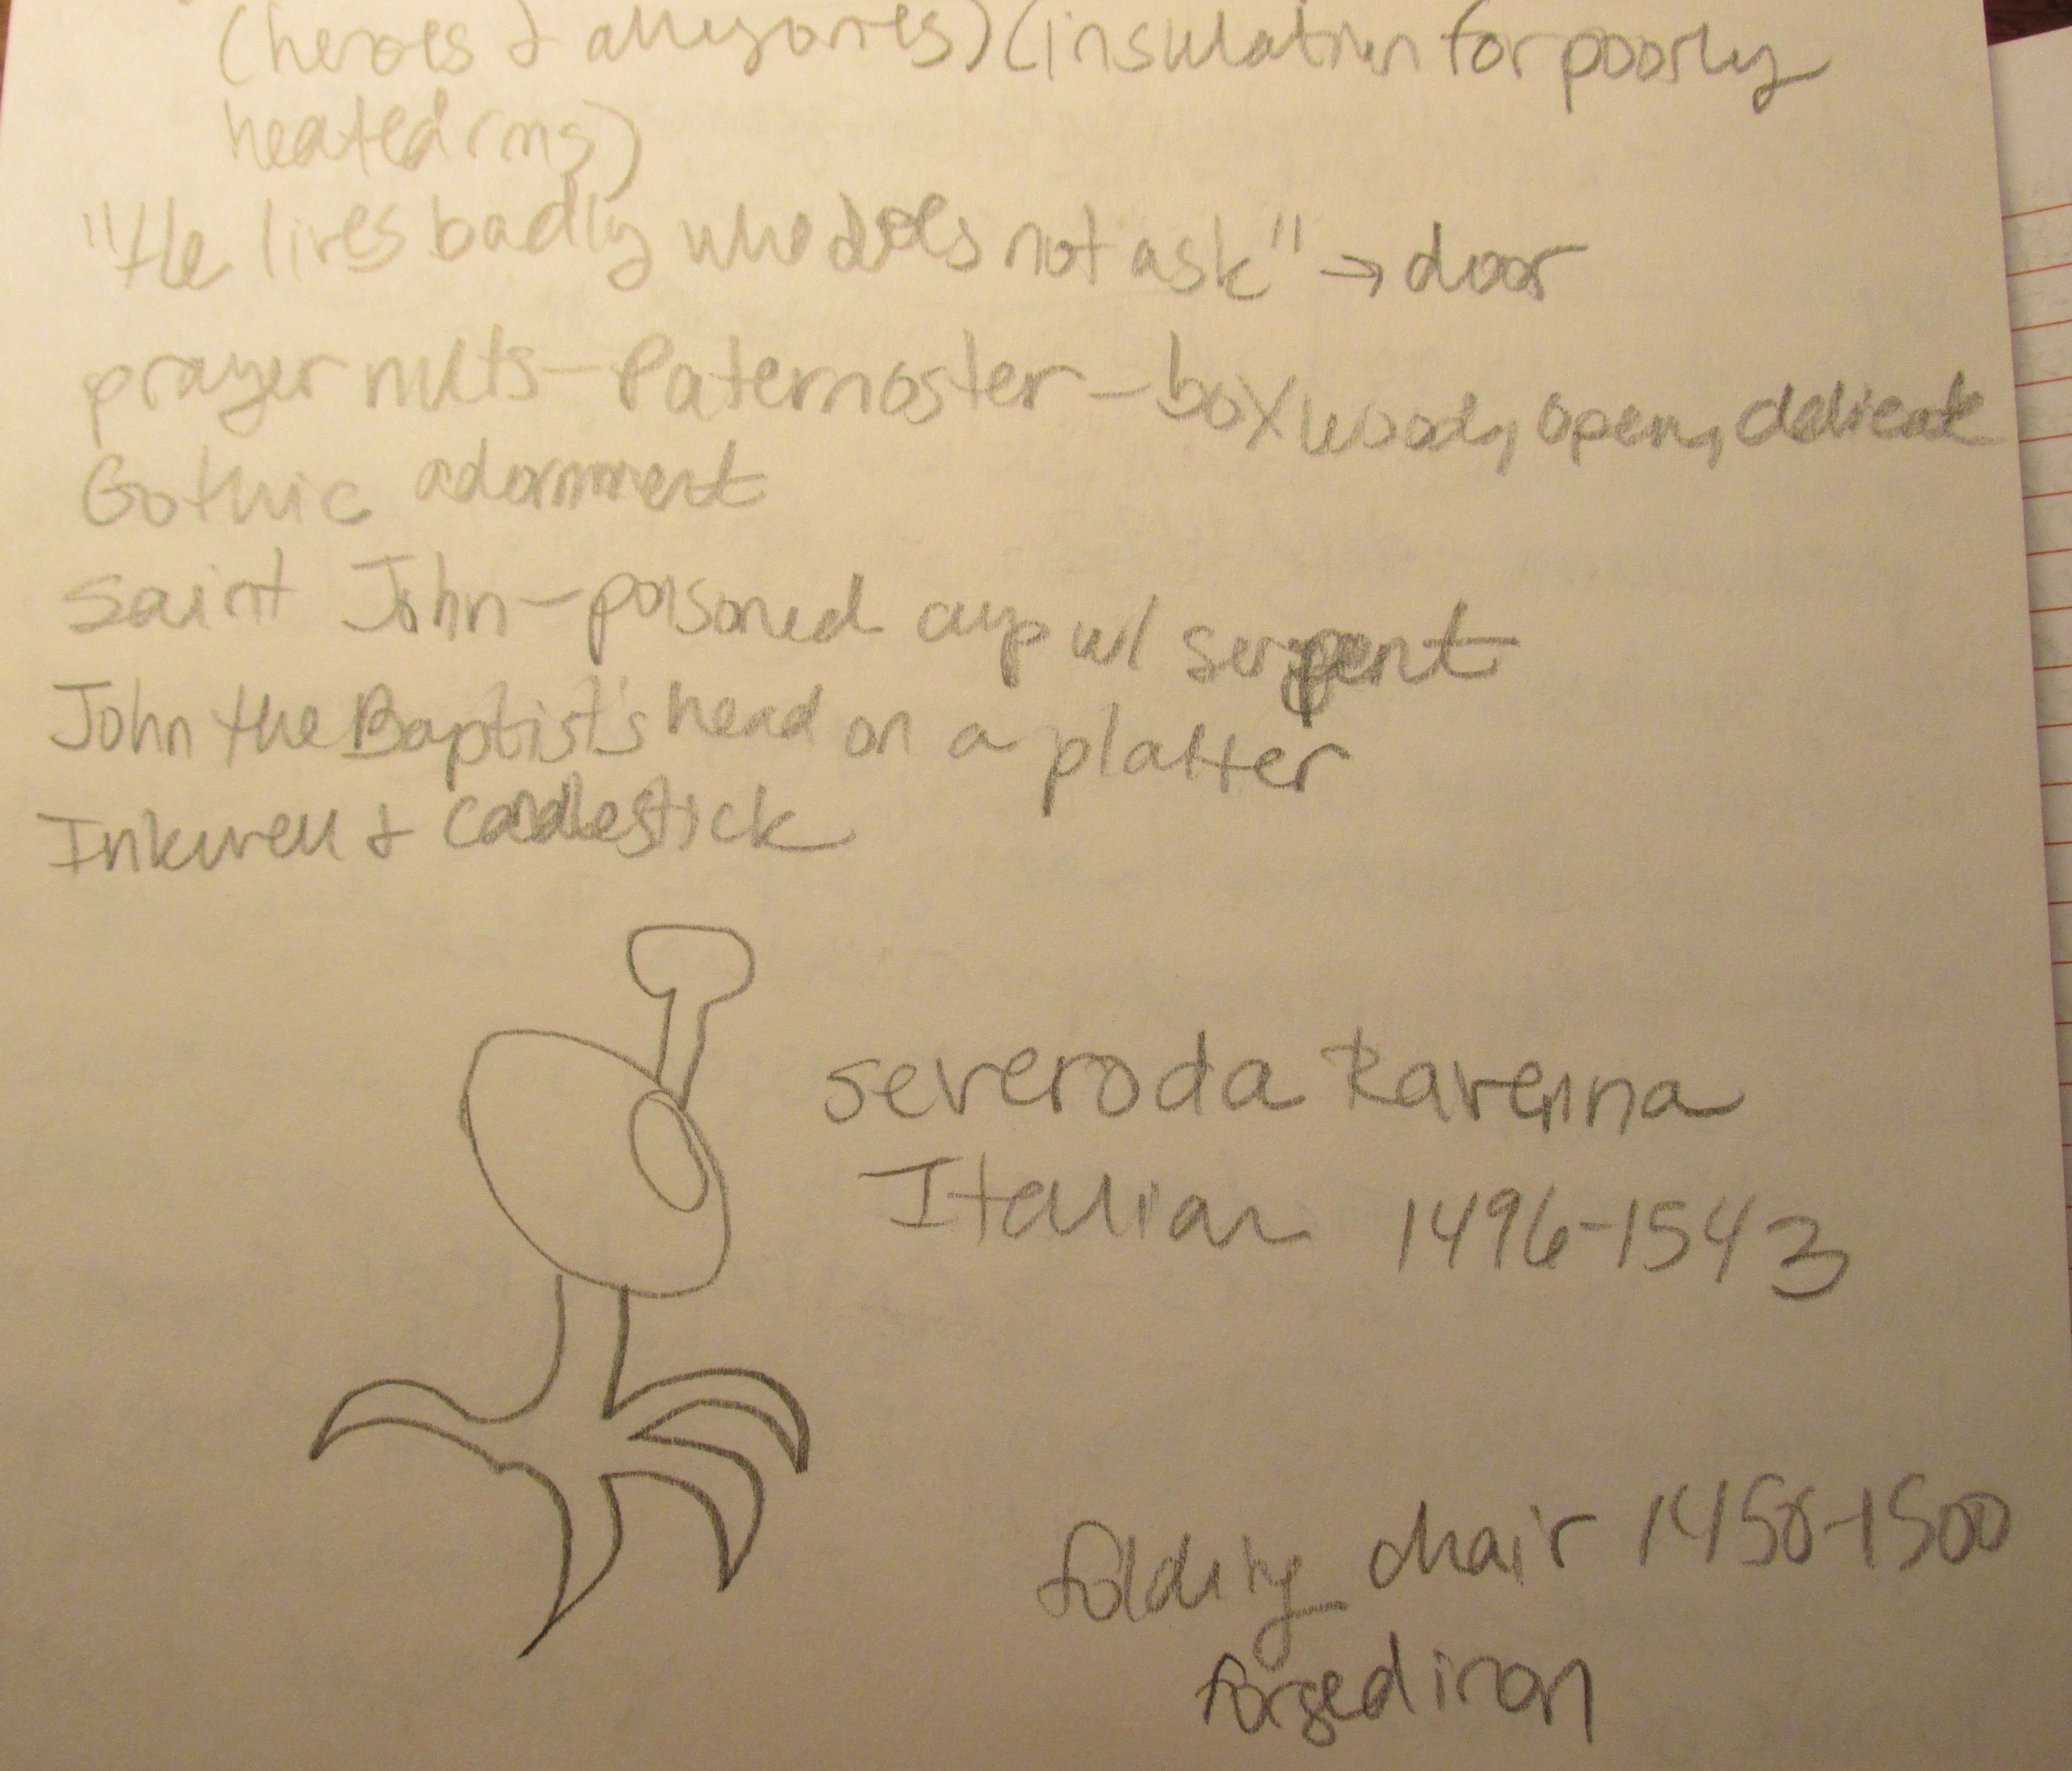 (heroes & allegories) (insulation for poorly
heated rms)
"He lives badly who does not ask" → door
prayer nuts - Paternoster - boxwood, open, delicate
Gothic adornment
Saint John - poisoned cup w/ serpent
John the Baptist's head on a platter
Inkwell & candlestick
severo da Ravenna
Italian 1496-1543
folding chair 1450-1500
forged iron